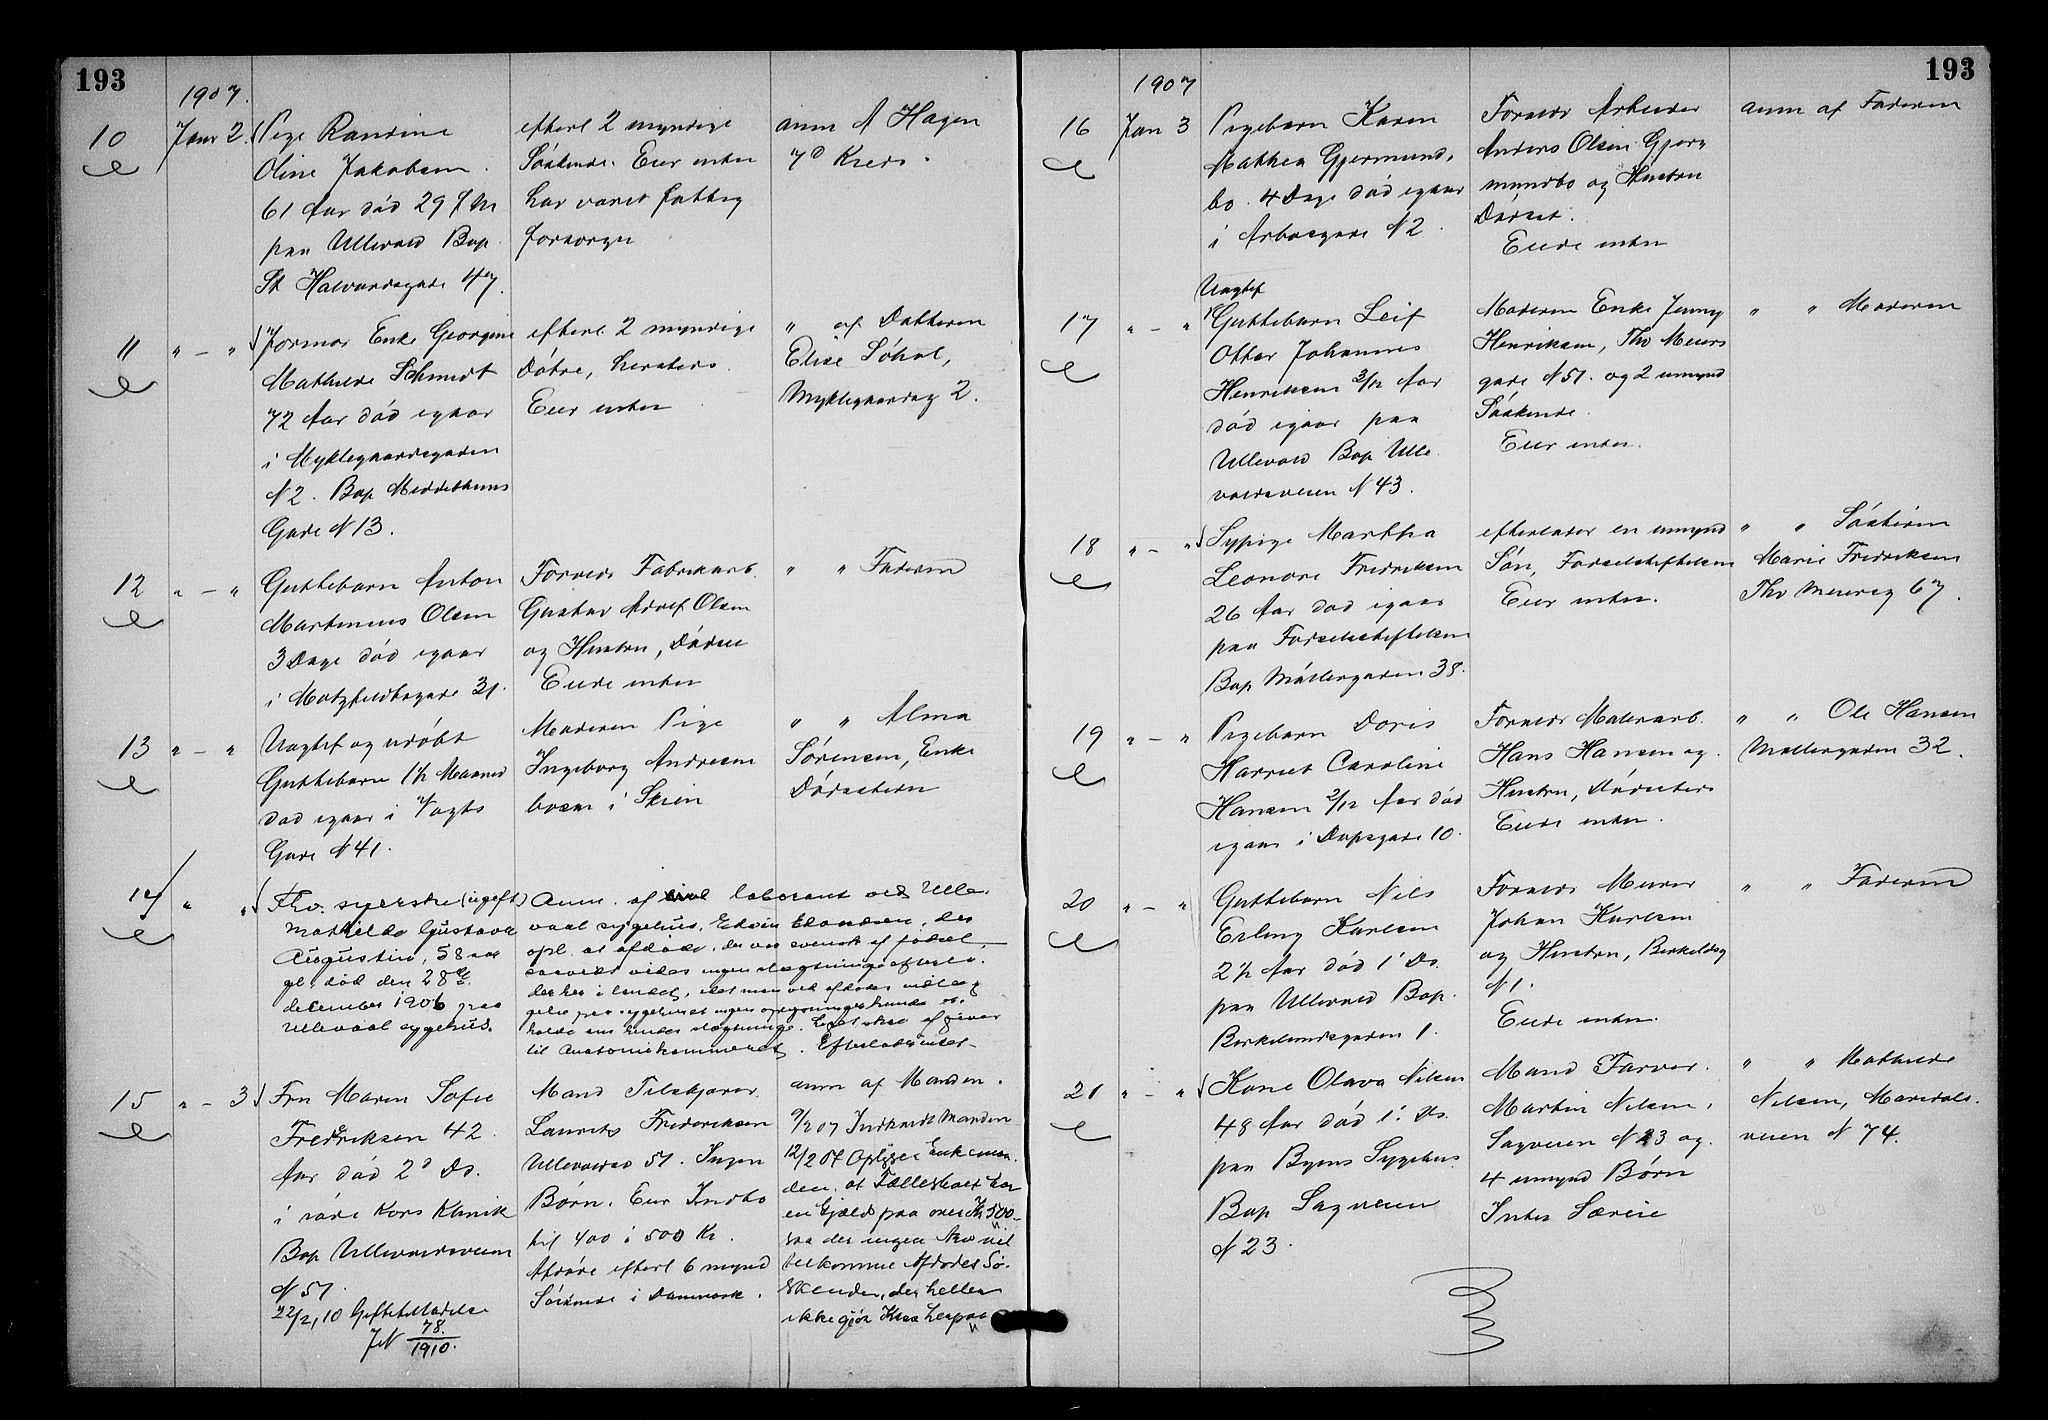 193
1907.
10 Janr 2. Pige Randine
Oline Jakobsen.
61 Aar död 29 f M
paa Ullevaal Bop.
St Halvardsgade 47.
efterl 2 myndige
Söskende. Eier intet
har været fattig
forsørget
anm A Hagen
7d Kreds.
11 " - " Jormor Enke Georgine
Mathilde Schmidt
72 Aar död igaar
i Myklegaardsgaden
N 2. Bop Meddelthuns
Gade N 13.
efterl. 2 myndige
Dötre,
Eier intet
" af Datteren
Elise Söhol,
Myklegaardsg 2.
12 " - " Guttebarn Anton
Martinius Olsen
3 Dage död igaar
i Motzfeldtsgade 31.
Forældr Fabrikarb.
Gustav Adolf Olsen
og Hustru, Dödsst
Eiede intet
" " Faderen
13 " - " Uægtef og udöbt
Guttebarn 1½ Maaned
död igaar i Vogts
Gade N 41.
Moderen Pige
Ingeborg Andresen
bosat i Skien
" " Alma
Sörensen, Enke
Dödsstedn
14 " " Fhv. syerske (ugift)
Mathilde Gustava
Augustin, 58 aar
gl. död den 28de
december 1906 paa
Ullevaal sygehus.
Anm. af laborant ved Ulle-
vaal sygehus, Edvin Elandsen, der
opl. at afdøde, der var svensk af födsel,
saavidt vides ingen slægtninge efterlo-
der her i landet, idet man ved afdødes indlæg-
gelse paa sygehuset ingen oplysninger kunde er-
holde om hendes slægtninge. Liget skal afgives
til Anatomikammeret. Efterlader intet.
15 " - 3 Fru Maren Sofie
Fredriksen 42
Aar död 2d Ds.
i röde Kors Klinik
Bop Ullevoldsveien
N 51.
22/2, 10 Gifteteltadelse
JN 78/1910.
Mand Tilskjærer
Laurits Frederiksen
Ullevoldsv 51. Ingen
Börn. Eier Indbo
til 400 à 500 Kr.
Afdöde efterl 6 mynd
Söskende i Danmark.
anm af Manden.
9/2 07 Indkaldt Manden
12/2 07 Oplyser Enkeman-
den, at Fællesboet har
en Gjæld paa over Kr 500-
saa der ingen Arv vil
tilkomme Afdødes Sö-
skende, der heller
ikke gjör Krav herpaa
193
1907
16 Jan 3 Pigebarn Karen
Mathea Gjermund-
bo. 4 Dage död igaar
i Arbosgade N 2.
Forældr Arbeider
Anders Olsen Gjer-
mundbo og Hustru
Dödsst.
Eiede intet
anm af Faderen
17 " - " Uægtef
Guttebarn Leif
Ottar Johannes
Henriksen 3/12 Aar
död igaar paa
Ullevold Bop Ulle-
voldsveien N 43.
Moderen Enke Jenny
Henriksen, Thv Meiers
gade N 51. og 2 umynd
Söskende.
Eier intet.
" " Moderen
18 " - " Sypige Martha
Leonore Fredriksen
26 Aar död igaar
paa Födselsstiftelsen
Bop Möllergaden 38.
efterlader en umynd
Sön, Födselsstiftelsen
Eier intet.
" " Sösteren
Marie Fredriksen
Thv Meiersg 67.
19 " - " Pigebarn Doris
Harriet Caroline
Hansen 2/12 Aar död
igaar i Dopsgade 10.
Forældr Malerarb.
Hans Hansen og
Hustru, Dödssteds
Eiede intet.
" " Ole Hansen
Möllergaden 32.
20 " - " Guttebarn Nils
Erling Karlsen
2½ Aar död 1' Ds.
paa Ullevold Bop.
Birkelundsgaden 1.
Forældr Murer
Johan Karlsen
og Hustru, Birkeldsg
N 1.
Eiede intet.
" " Faderen
21 " - " Kone Olava Nilsen
48 Aar död 1. Ds.
paa Byens Sygehus
Bop Sagveien
N 23.
Mand Farver.
Martin Nilsen,
Sagveien N 23 og
4 umynd Börn
Intet Særeie
" " Mathilde
Nilsen, Maridals-
veien N 74.